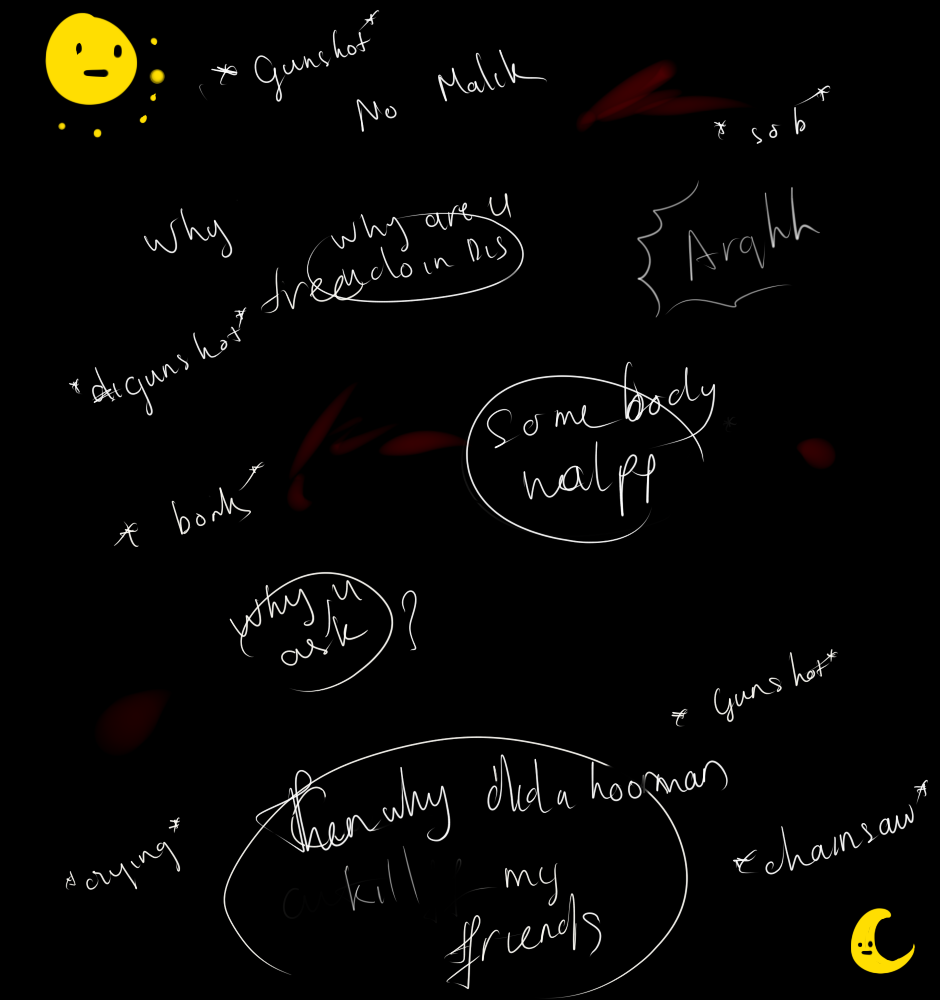 * Gunshot *
No Malik
* sob *
Why
why are u
doin Dis
Arghh
*gunshot*
Some body
halpp
* bonk *
Why u
ask ?
* Gunshot *
then why did a hooman
kill my
friends
*crying*
*chainsaw*